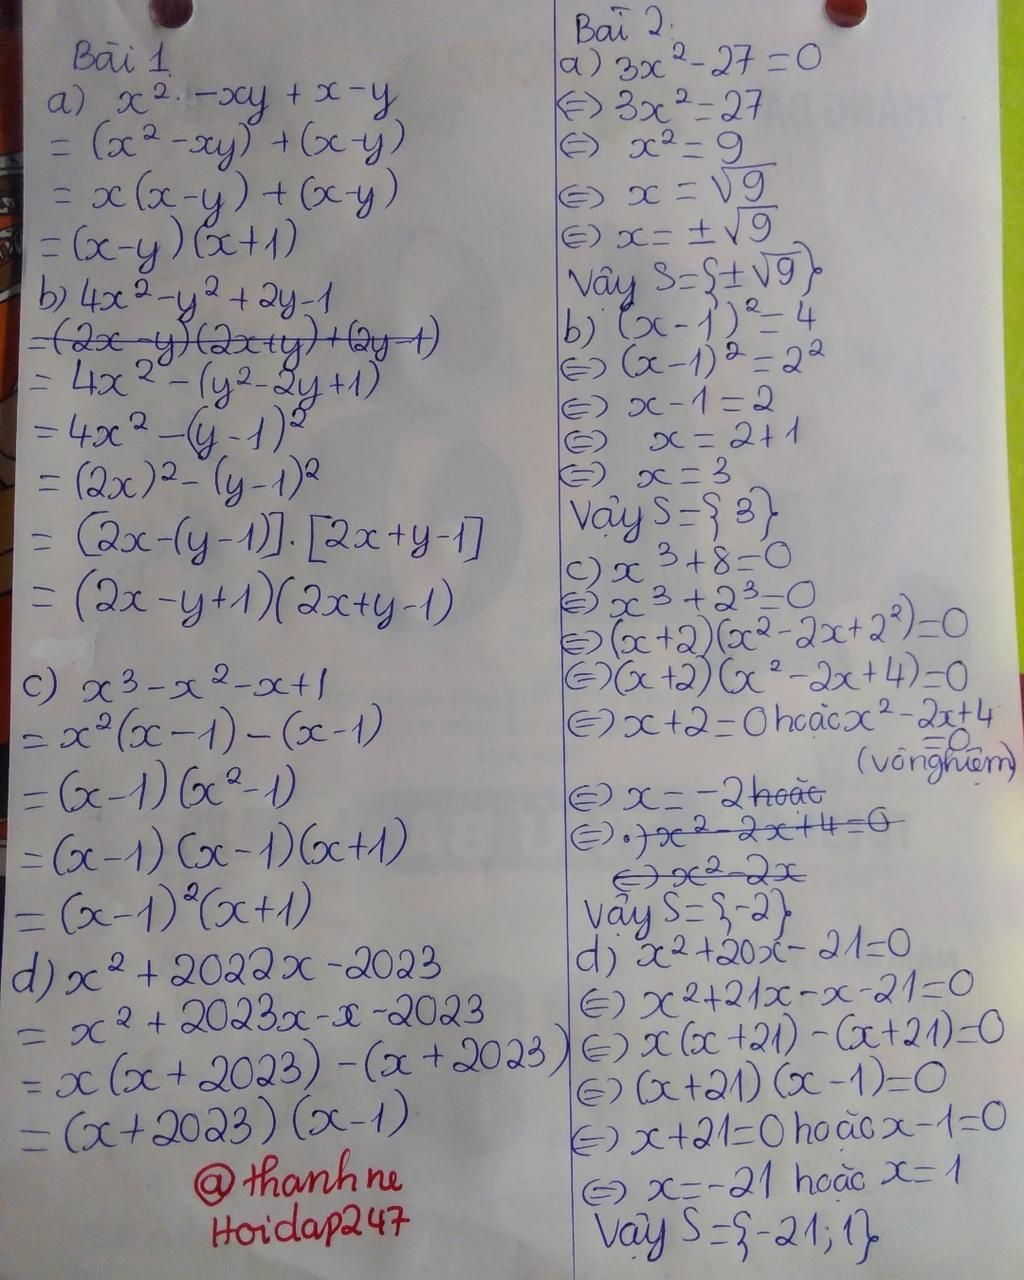 Bài 1
a) x² - xy + x - y
= (x² - xy) + (x - y)
= x(x - y) + (x - y)
= (x - y)(x + 1)
b) 4x² - y² + 2y - 1
= (2x - y)(2x + y) + (2y - 1)
= 4x² - (y² - 2y + 1)
= 4x² - (y - 1)²
= (2x)² - (y - 1)²
= (2x - (y - 1)] . [2x + y - 1]
= (2x - y + 1)(2x + y - 1)
c) x³ - x² - x + 1
= x²(x - 1) - (x - 1)
= (x - 1)(x² - 1)
= (x - 1)(x - 1)(x + 1)
= (x - 1)²(x + 1)
d) x² + 2022x - 2023
= x² + 2023x - x - 2023
= x(x + 2023) - (x + 2023)
= (x + 2023)(x - 1)
@thanhne
Hoidap247
Bài 2.
a) 3x² - 27 = 0
⇔ 3x² = 27
⇔ x² = 9
⇔ x = √9
⇔ x = ±√9
Vậy S = {±√9}
b) (x - 1)² = 4
⇔ (x - 1)² = 2²
⇔ x - 1 = 2
⇔ x = 2 + 1
⇔ x = 3
Vậy S = {3}
c) x³ + 8 = 0
⇔ x³ + 2³ = 0
⇔ (x + 2)(x² - 2x + 2²) = 0
⇔ (x + 2)(x² - 2x + 4) = 0
⇔ x + 2 = 0 hoặc x² - 2x + 4
= 0
(vô nghiệm)
⇔ x = -2 hoặc
⇔ .) x² - 2x + 4 = 0
⇔ x² - 2x
Vậy S = {-2}
d) x² + 20x - 21 = 0
⇔ x² + 21x - x - 21 = 0
⇔ x(x + 21) - (x + 21) = 0
⇔ (x + 21)(x - 1) = 0
⇔ x + 21 = 0 hoặc x - 1 = 0
⇔ x = -21 hoặc x = 1
Vậy S = {-21; 1}